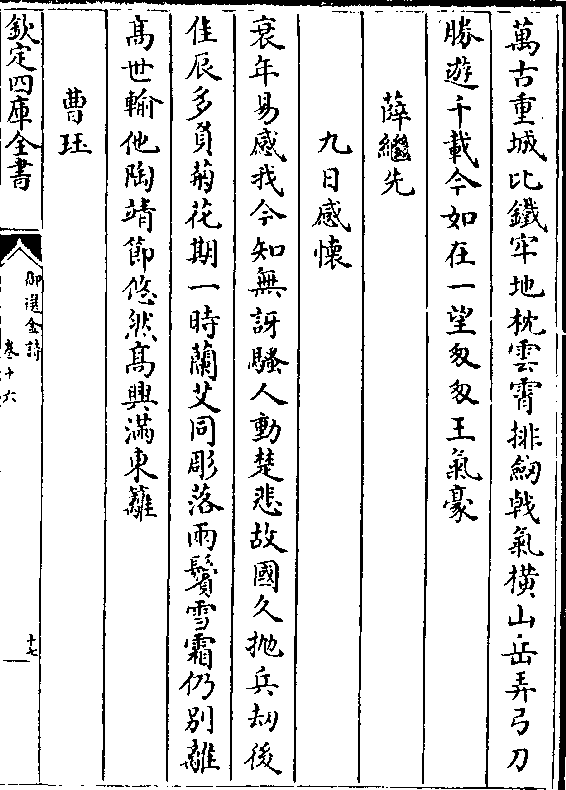 萬古重城比鐵牢地枕雲霄排劒戟氣横山岳弄弓刀
勝遊千載今如在一望匆匆王氣豪
薛繼先
九日感懐
衰年易感我今知無訝騷人動楚悲故國久抛兵刧後
佳辰多負菊花期一時蘭艾同彫落雨鬢雪霜仍别離
髙世輸他陶靖節悠然髙興滿東籬
曹珏
欽定四庫全書
御選金詩
卷十六
十七